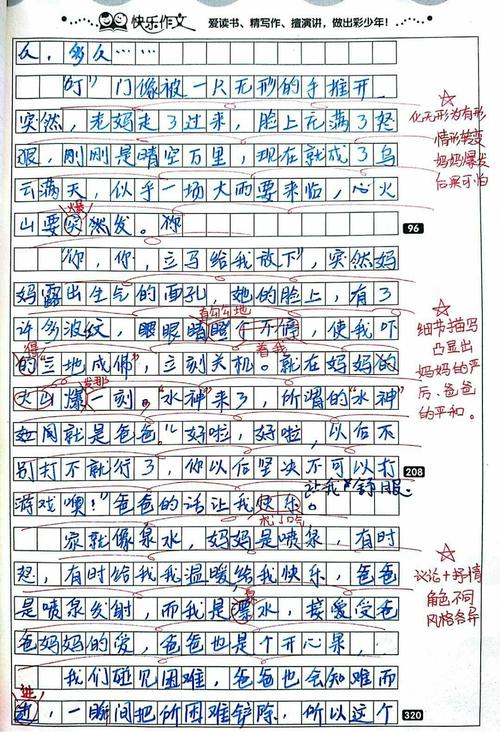 快乐作文
爱读书、精写作、擅演讲，做出彩少年！
么，多么……
“叮”门像被一片无形的手推开
☆
突然，老妈走了过来，脸上充满了怒
化无形为有形
艰，刚刚是晴空万里，现在就成了乌
情形转变
妈妈爆发
云满天，似乎一场大雨要来临，心火
后果可怕
爆
山要突然发。你
96
“你，你，立马给我放下”，突然妈
妈露出生气的面孔，她的脸上，有了
☆
直勾勾地
许多波纹，眼睛个不停，使我吓
细节描写
得
着我
凸显出
的“立地成佛”，立刻关机。就在妈妈的
妈妈的严
发那
后、爸爸
火山爆一刻。“水神”来了，所谓的“水神”
的平和。
如同就是爸爸。“好啦，好啦，以后不
别打不就行了，你以后坚决不可以打
208
让我舒服。
游戏噢！”爸爸的话让我快乐。
家就像泉水，妈妈是喷泉，有时
☆
怒，有时给我我温暖给我快乐，爸爸
议论+抒情
角色不同
是喷泉发射，而我是漂水，接爱受爸
风格各异
爸妈妈的爱，爸爸也是个开心果，
我们碰见困难，爸爸也会知难而
进
近，一瞬间把所困难铲除，所以这个
320